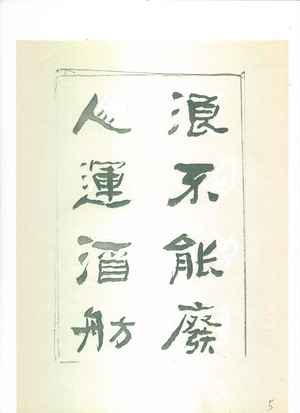 浪不能廢
人運酒舫
5